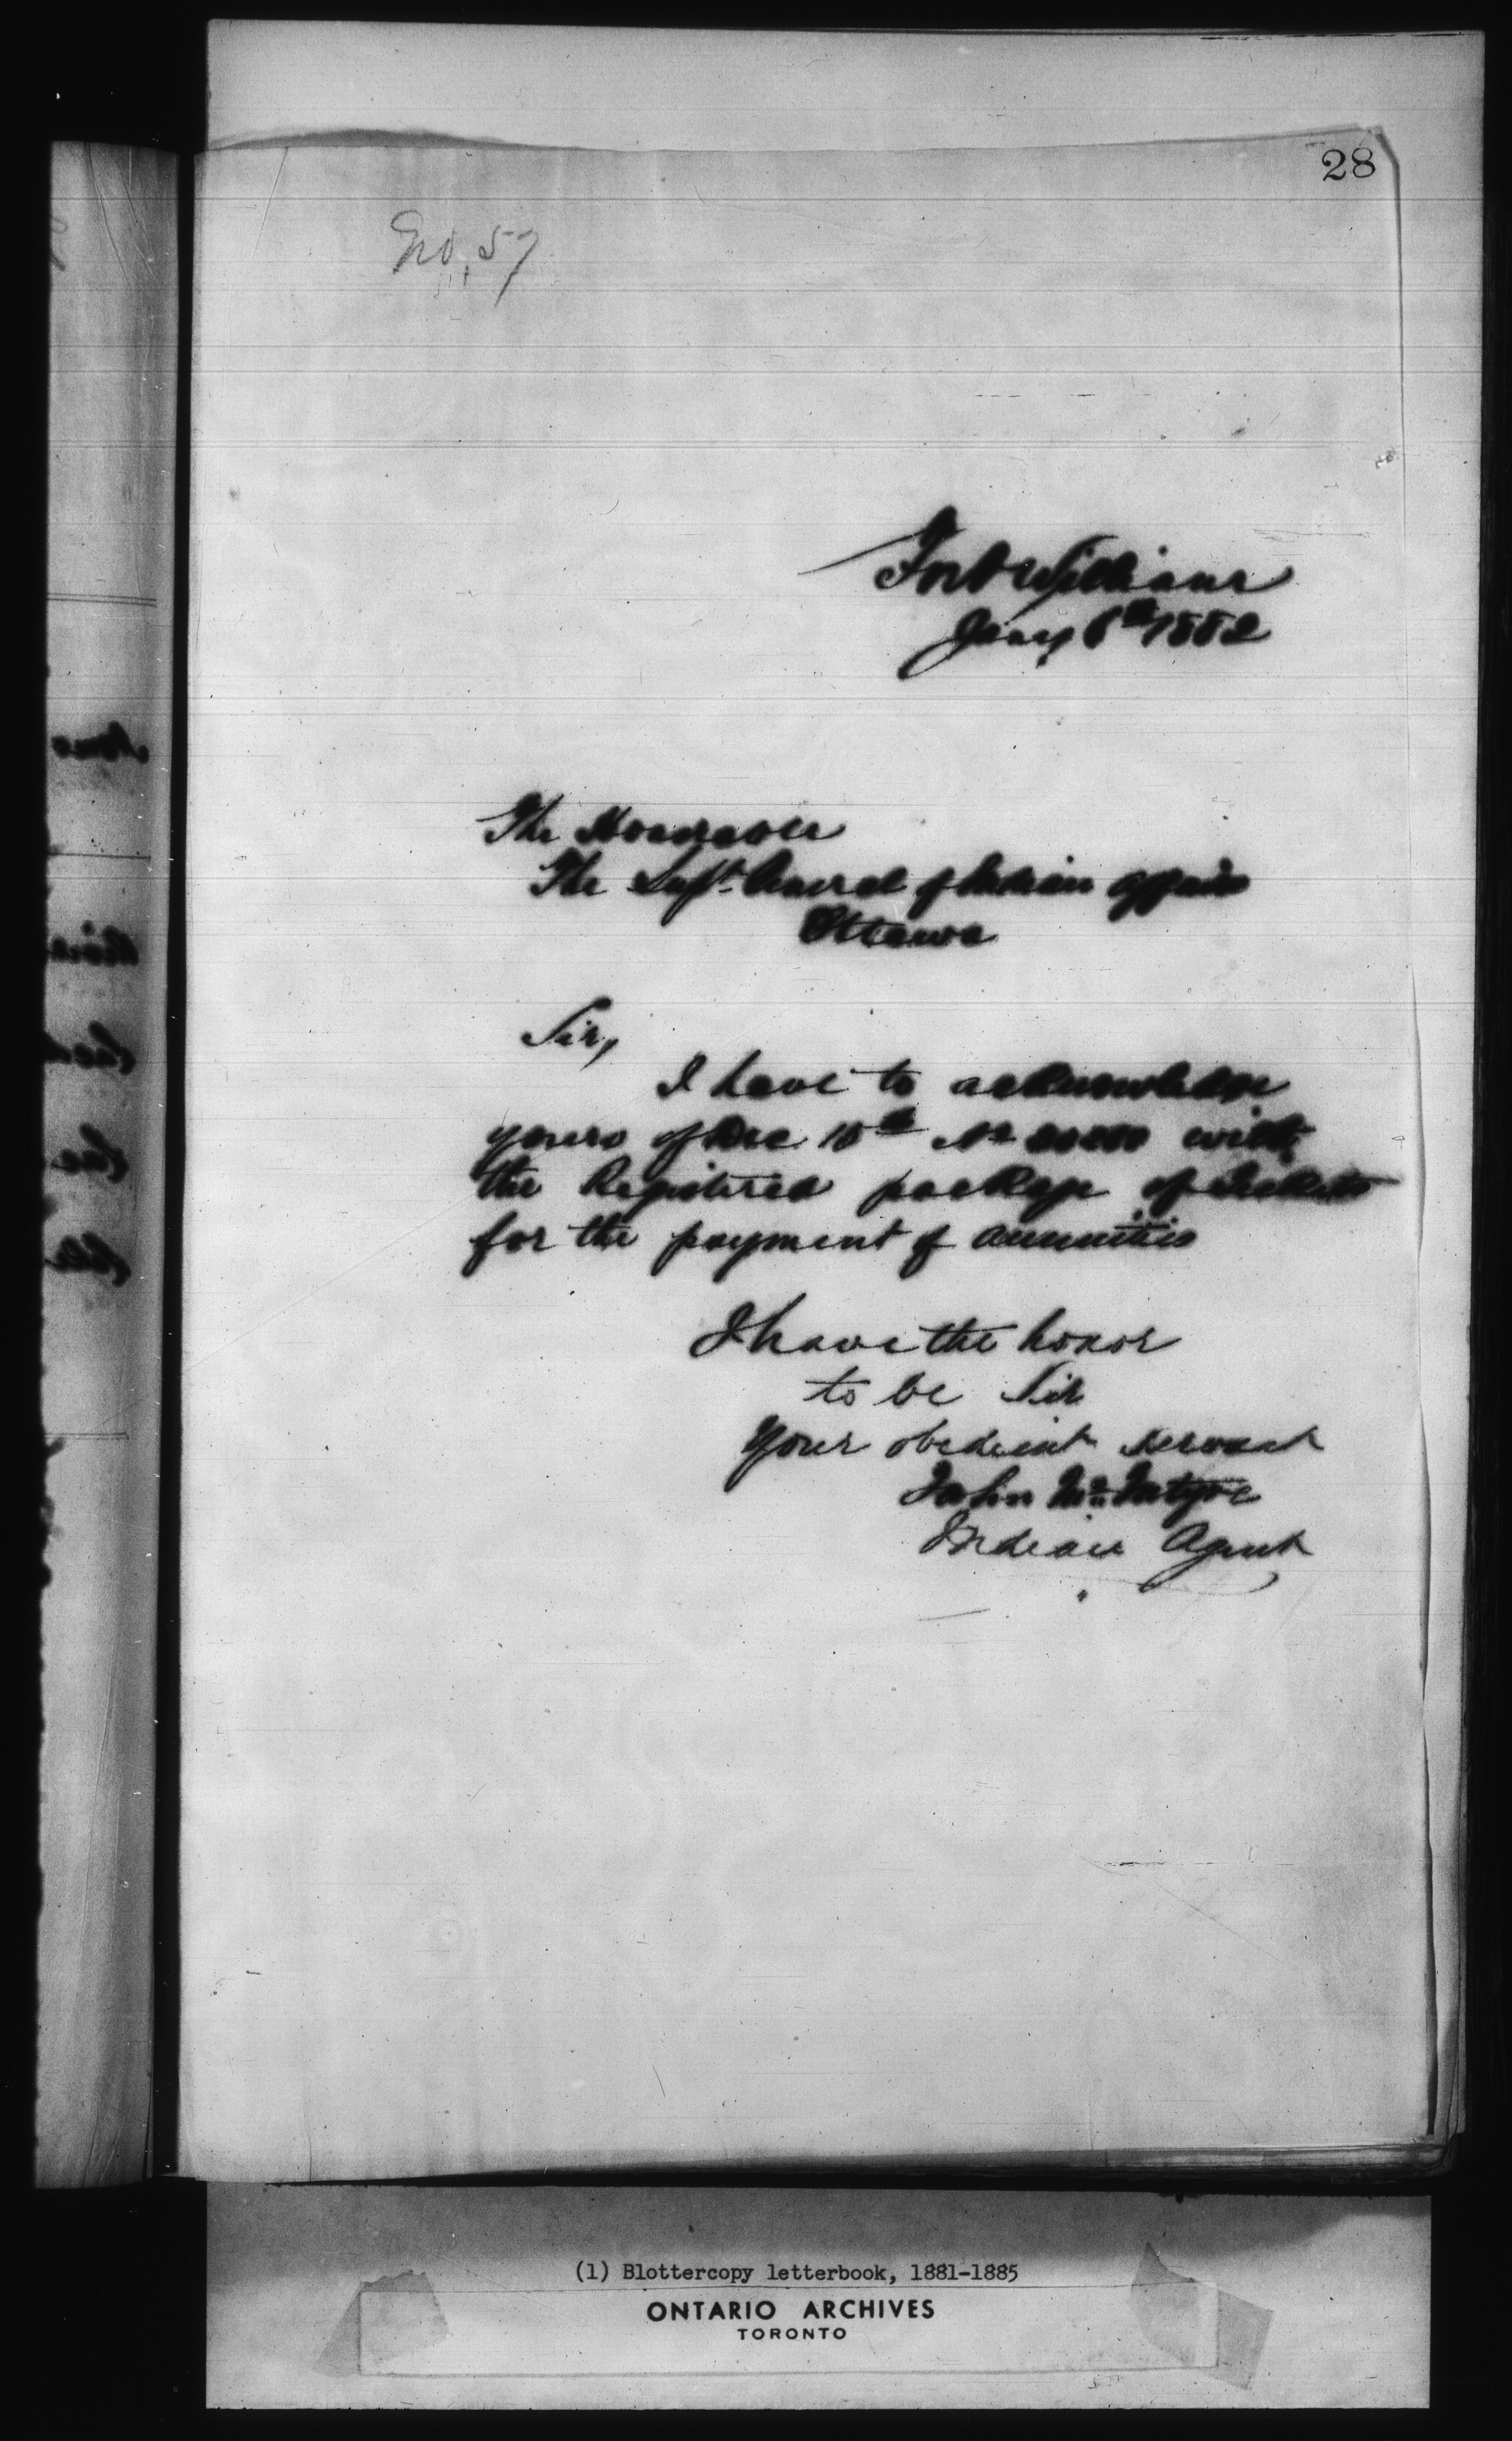 28
No. 57
Fort William
Jany 6th 1882
The Honorable
The Supt. General of Indian Affairs
Ottawa
Sir,
I have to acknowledge
yours of Dec 10th No with
the Registered package of tickets
for the payment of annuities
I have the honor
to be Sir
Your obedient servant
John McIntyre
Indian Agent
(1) Blottercopy letterbook, 1881-1885
ONTARIO ARCHIVES
TORONTO